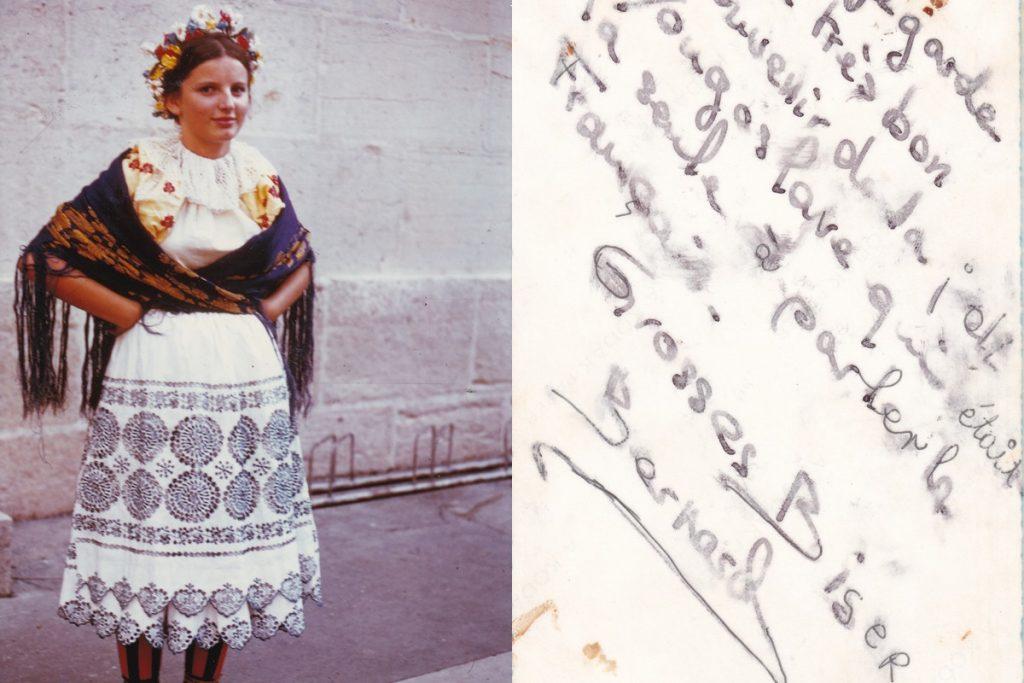 egarde
très bon
ouvenir de la
Yougoslave qui était
la seule à parler le
Français
Grosses Bises
Bernard